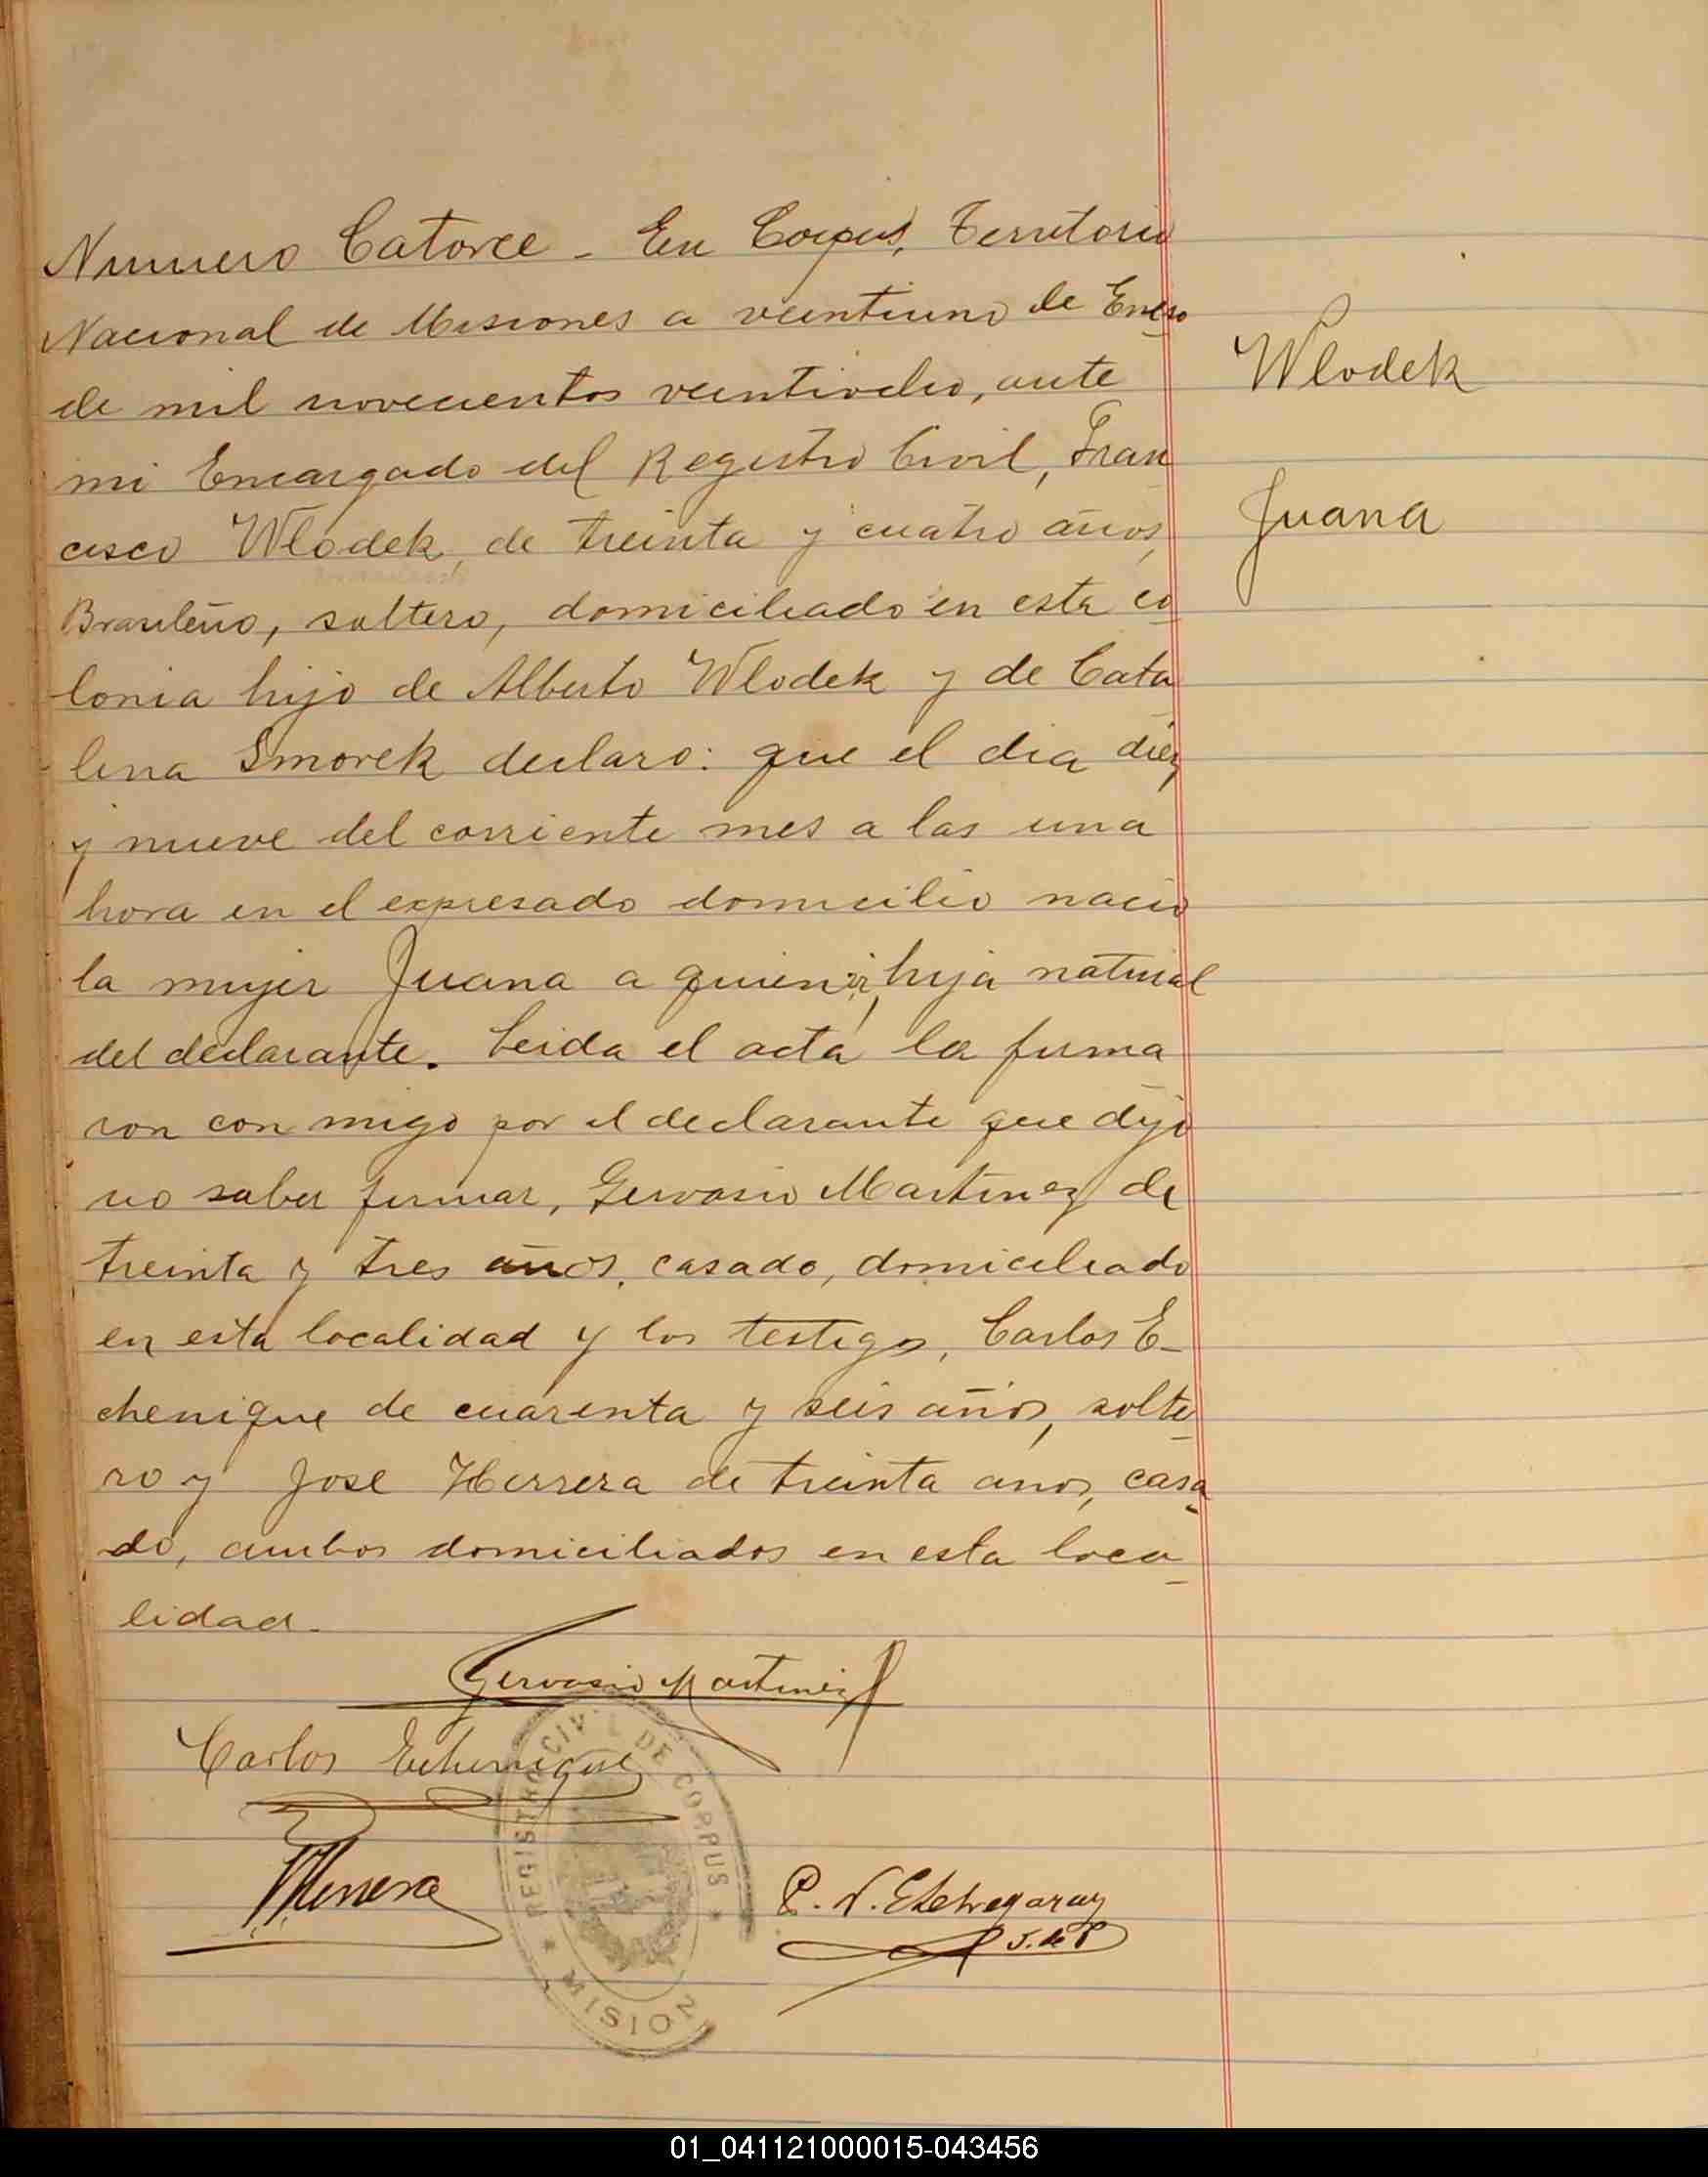 Numero Catorce - En Corpus, Territorio
Nacional de Misiones a veintiuno de Enero
de mil novecientos veintiocho, ante
mi Encargado del Registro Civil, Fran
cisco Wlodek, de treinta y cuatro años,
Brasileño, soltero, domiciliado en esta co
lonia hijo de Alberto Wlodek y de Cata
lina Smorek declaro: que el dia diez
y nueve del corriente mes a las una
hora en el expresado domicilio nacio
la mujer Juana a quien vi, hija natural
del declarante. Leida el acta la firma
ron con migo por el declarante que dijo
no saber firmar, Gervasio Martinez de
treinta y tres años, casado, domiciliado
en esta localidad y los testigos, Carlos E-
chenique de cuarenta y seis años, solte
ro y Jose Herrera de treinta anos, casa
do, ambos domiciliados en esta loca
lidad.
Wlodek
Juana
Gervasio Martinez
Carlos Echenique
Herrera
P. N. Etchegaray
J. de P
REGISTRO CIVIL DE CORPUS
MISION
01_041121000015-043456